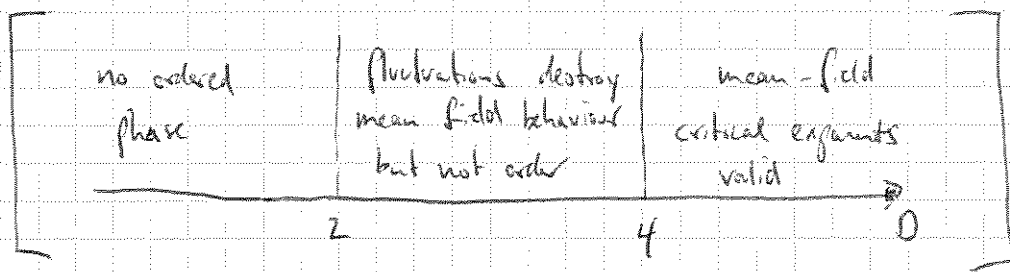 no ordered
phase
fluctuations destroy
mean field behaviour
but not order
mean-field
critical exponents
valid
2
4
D